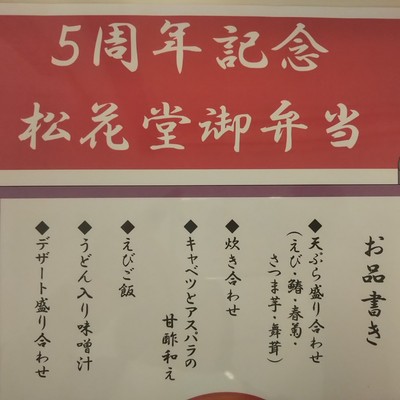 5周年記念
松花堂御弁当
お品書き
◆天ぷら盛り合わせ
(えび・鱚・春菊・
さつま芋・舞茸)
◆炊き合わせ
◆キャベツとアスパラの
甘酢和え
◆えびご飯
◆うどん入り味噌汁
◆デザート盛り合わせ